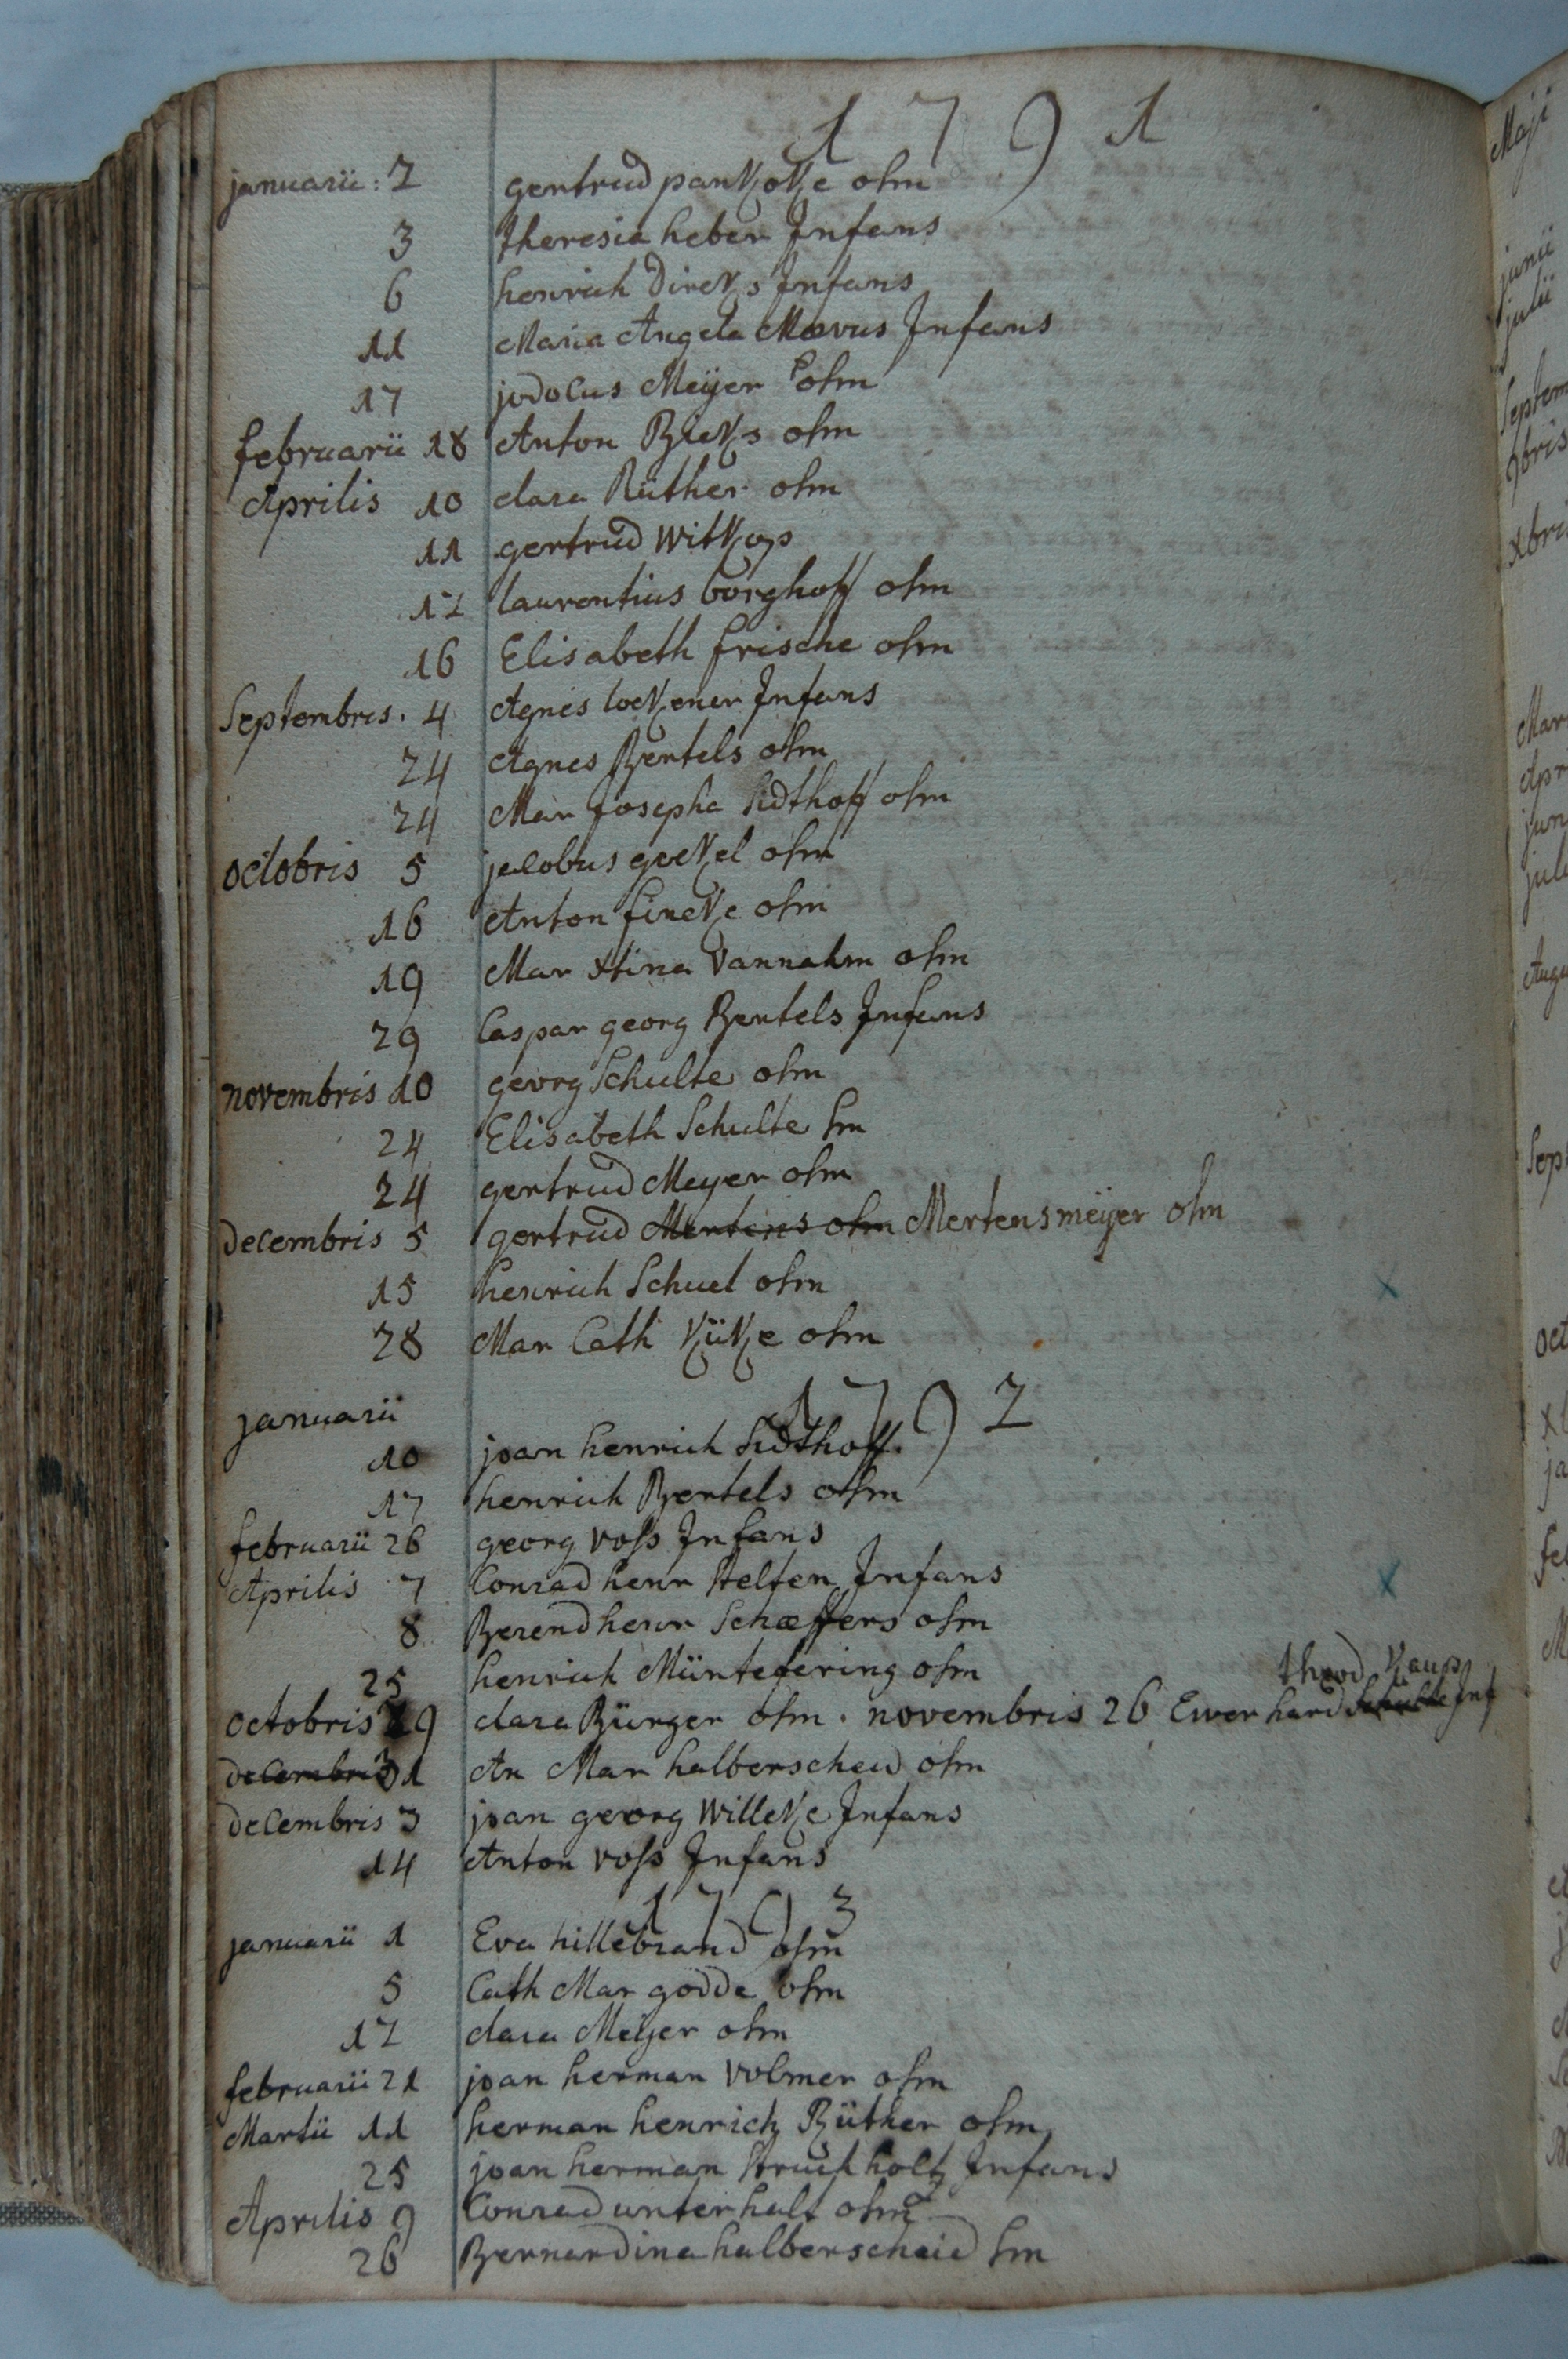 1791
januarii: 2 gertrud pankoke ohm
3 Theresia heber Infans
6 henrich Direks Infans
11 Maria Angela Mævus Infans
17 jodocus Meÿer ohm
februarii 18 Anton Rieks ohm
Aprilis 10 clara Rüther ohm
11 gertrud Witkop
12 laurentius borghoff ohm
16 Elisabeth frische ohm
Septembris. 4 Agnes loekener Infans
24 Agnes Bertels ohm
24 Mar Josepha Sidthoff ohm
octobris 5 jacobus goekel ohm
16 Anton fineke ohm
19 Mar Xtina Vannahm ohm
29 Caspar georg Bertels Infans
novembris 10 georg Schulte ohm
24 Elisabeth Schulte hm
24 gertrud Meyer ohm
decembris 5 gertrud Mertens ohm Mertensmeÿer ohm
15 henrich Schuel ohm
28 Mar Cath Küke ohm
1792
januarii
10 joan henrich Sidthoff.
17 henrich Bertels ohm
februarii 26 georg voss Infans
Aprilis 7 Conrad henr Helten Infans
8 Berend henr Schæffers ohm
25 henrich Müntefering ohm
theod Kaup
octobris 29 clara Bürger ohm. novembris 26 Ewerhard Schulte Inf
decembris 31 An Mar halberscheid ohm
decembris 3 joan georg Willeke Infans
14 Anton voss Infans
1793
januarii 1 Eva hillebrand ohm
5 Cath Mar godde ohm
12 clara Meÿer ohm
februarii 21 joan herman volmer ohm
Martii 11 herman henrich Rüther ohm
25 joan herman Struckholtz Infans
Aprilis 9 Conrad unterhalt ohm
26 Bernardina halberscheid hm